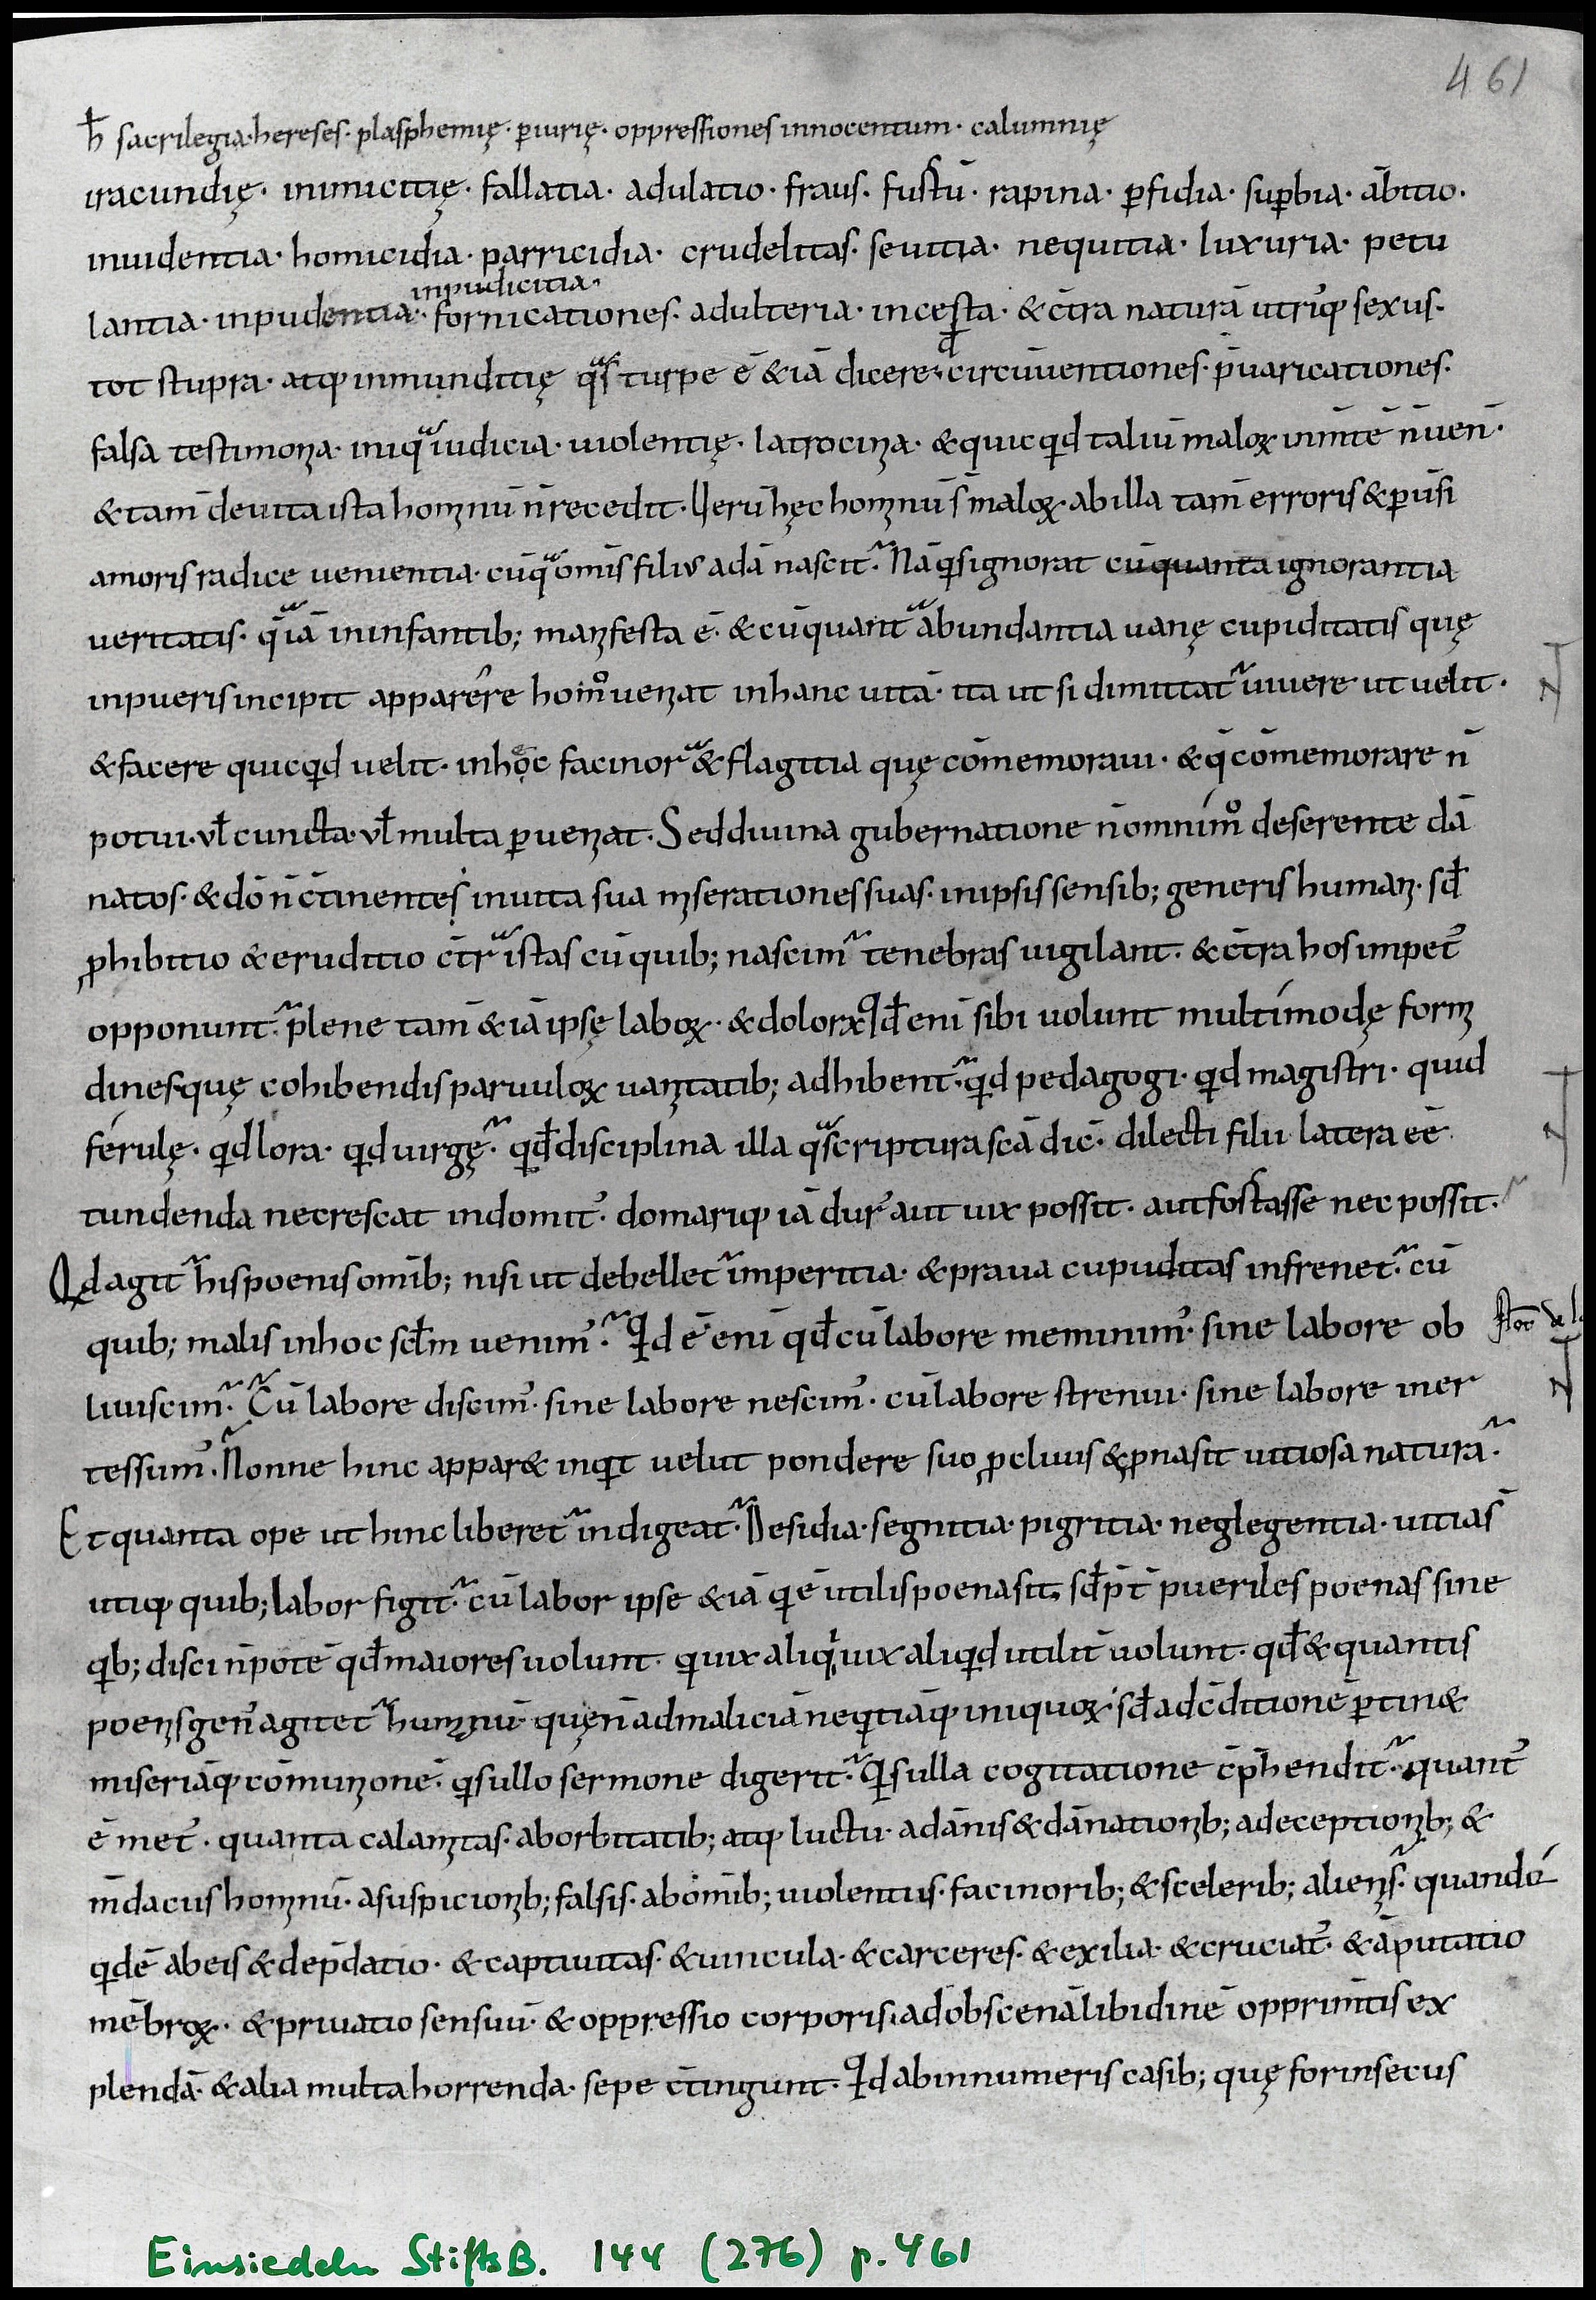 461
h̄ sacrilegia· hereses· plasphemię· ꝑiurię· oppressiones innocentum· calumnię
iracundię· inimicitię· fallatia· adulatio· fraus· fustū· rapina· ꝑfidia· suꝑbia· ābitio·
inuidentia· homicidia· parricidia· crudelitas· seuitia· nequitia· luxuria· petu
inpudicitia·
lantia· inpudentia· fornicationes· adulteria· incesta· & c̄tra naturā utriꝗ sexus·
tot stupra· atꝗ inmunditię q̄s turpe ē &iā dicere· circūuentiones· p̄uaricationes·
falsa testimonia· iniqͣ iudicia· uiolentię· latrocinia· & quicꝗd taliū maloꝝ inm̄tē n̄ uen̄·
& tam̄ deuita ista hominū n̄ recedit· Uerū hęc hominū s̄ maloꝝ· ab illa tam̄ erroris & ꝑuersi
amoris radice uenientia· cū qͣ om̄is filius adā nascit᷑· Nā ꝗs ignorat cū quanta ignorantia
ueritatis· q̄ iā in infantib; manifesta ē· & cū quantͣ abundantia uanę cupiditatis quę
in pueris incipit apparere homo ueniat in hanc uitā· ita ut si dimittat᷑ uiuere ut uelit·
& facere quicꝗd uelit· in hęc facinorͣ & flagitia quę cōmemoraui· & q̄ cōmemorare n̄
potui· ul̄ cuncta· ul̄ multa ꝑueniat· Sed diuina gubernatione n̄ omnimͦ deserente dā
natos· & dō n̄ c̄tinentes in uita sua miserationes suas· in ipsis sensib; generis humani· sed̄
ꝓhibitio & eruditio c̄trͣ istas cū quib; nascim᷑ tenebras uigilant· & c̄tra hos impet᾽
opponunt᷑· plene tam̄ &iā ipsę laboꝝ· & doloꝝ Qd̄ eni sibi uolunt multimodę formi
dines quę cohibendis paruuloꝝ uanitatib; adhibent᷑· ꝗd pedagogi· ꝗd magistri· quid
férulę· ꝗd lora· ꝗd uirgę· ꝗd disciplina illa qͣ scriptura sc̄a dic̄· dilecti filii latera eē
tundenda ne crescat indomit᾽· domariꝗ iā dur᾽ aut uix possit· aut fortasse nec possit·
Qd agit᷑ his poenis om̄ib; nisi ut debellet᷑ imperitia· & praua cupiditas infrenet᷑· cū
quib; malis in hoc sc̄lm uenim᾽· Qd ē eni qd̄ cū labore meminim᾽· sine labore ob
liuiscim᷑· Cū labore discim᾽· sine labore nescim᾽· cū labore strenui· sine labore iner
tes sum᾽· Nonne hinc appar& inꝗt uelut pondere suo ꝓcliuis & ꝓna sit uitiosa natura·
Et quanta ope ut hinc liberet᷑ indigeat· Desidia· segnitia· pigritia· neglegentia· uitia s̄
utiꝗ quib; labor figit᷑· cū labor ipse &iā ꝗ ē utilis poena sit· sed̄ p̄t pueriles poenas sine
ꝗb; disci n̄ potē qd̄ maiores uolunt· ꝗ uix aliq̇ uix aliꝗd utilit̄ uolunt· qd̄ & quantis
poenis gen᾽ agitet᷑ humanū· quę n̄ ad maliciā neꝗtiāꝗ iniquoꝝ· sed̄ ad c̄ditionē ꝑtin&
miseriāꝗ cōmunionē· ꝗs ullo sermone digerit· Qs ulla cogitatione c̄p̄hendit· quant᾽
ē met᾽· quanta calamitas· ab orbitatib; atꝗ luctu· a dānis & dānationib; a deceptionib; &
m̄daciis hominū· a suspicionib; falsis· ab om̄ib; uiolentis· facinorib; & scelerib; alienis· quando
ꝗdē ab eis & dep̄datio· & captiuitas· & uincula· & carceres· & exilia· & cruciat᾽· & āputatio
mēbroꝝ· & priuatio sensuū· & oppressio corporis· ad obscenā libidinē opprim̄tis ex
plendā· & alia multa horrenda· sepe c̄tingunt· Qd ab innumeris casib; quę forinsecus
Einsiedeln StiftsB. 144 (276) p. 461